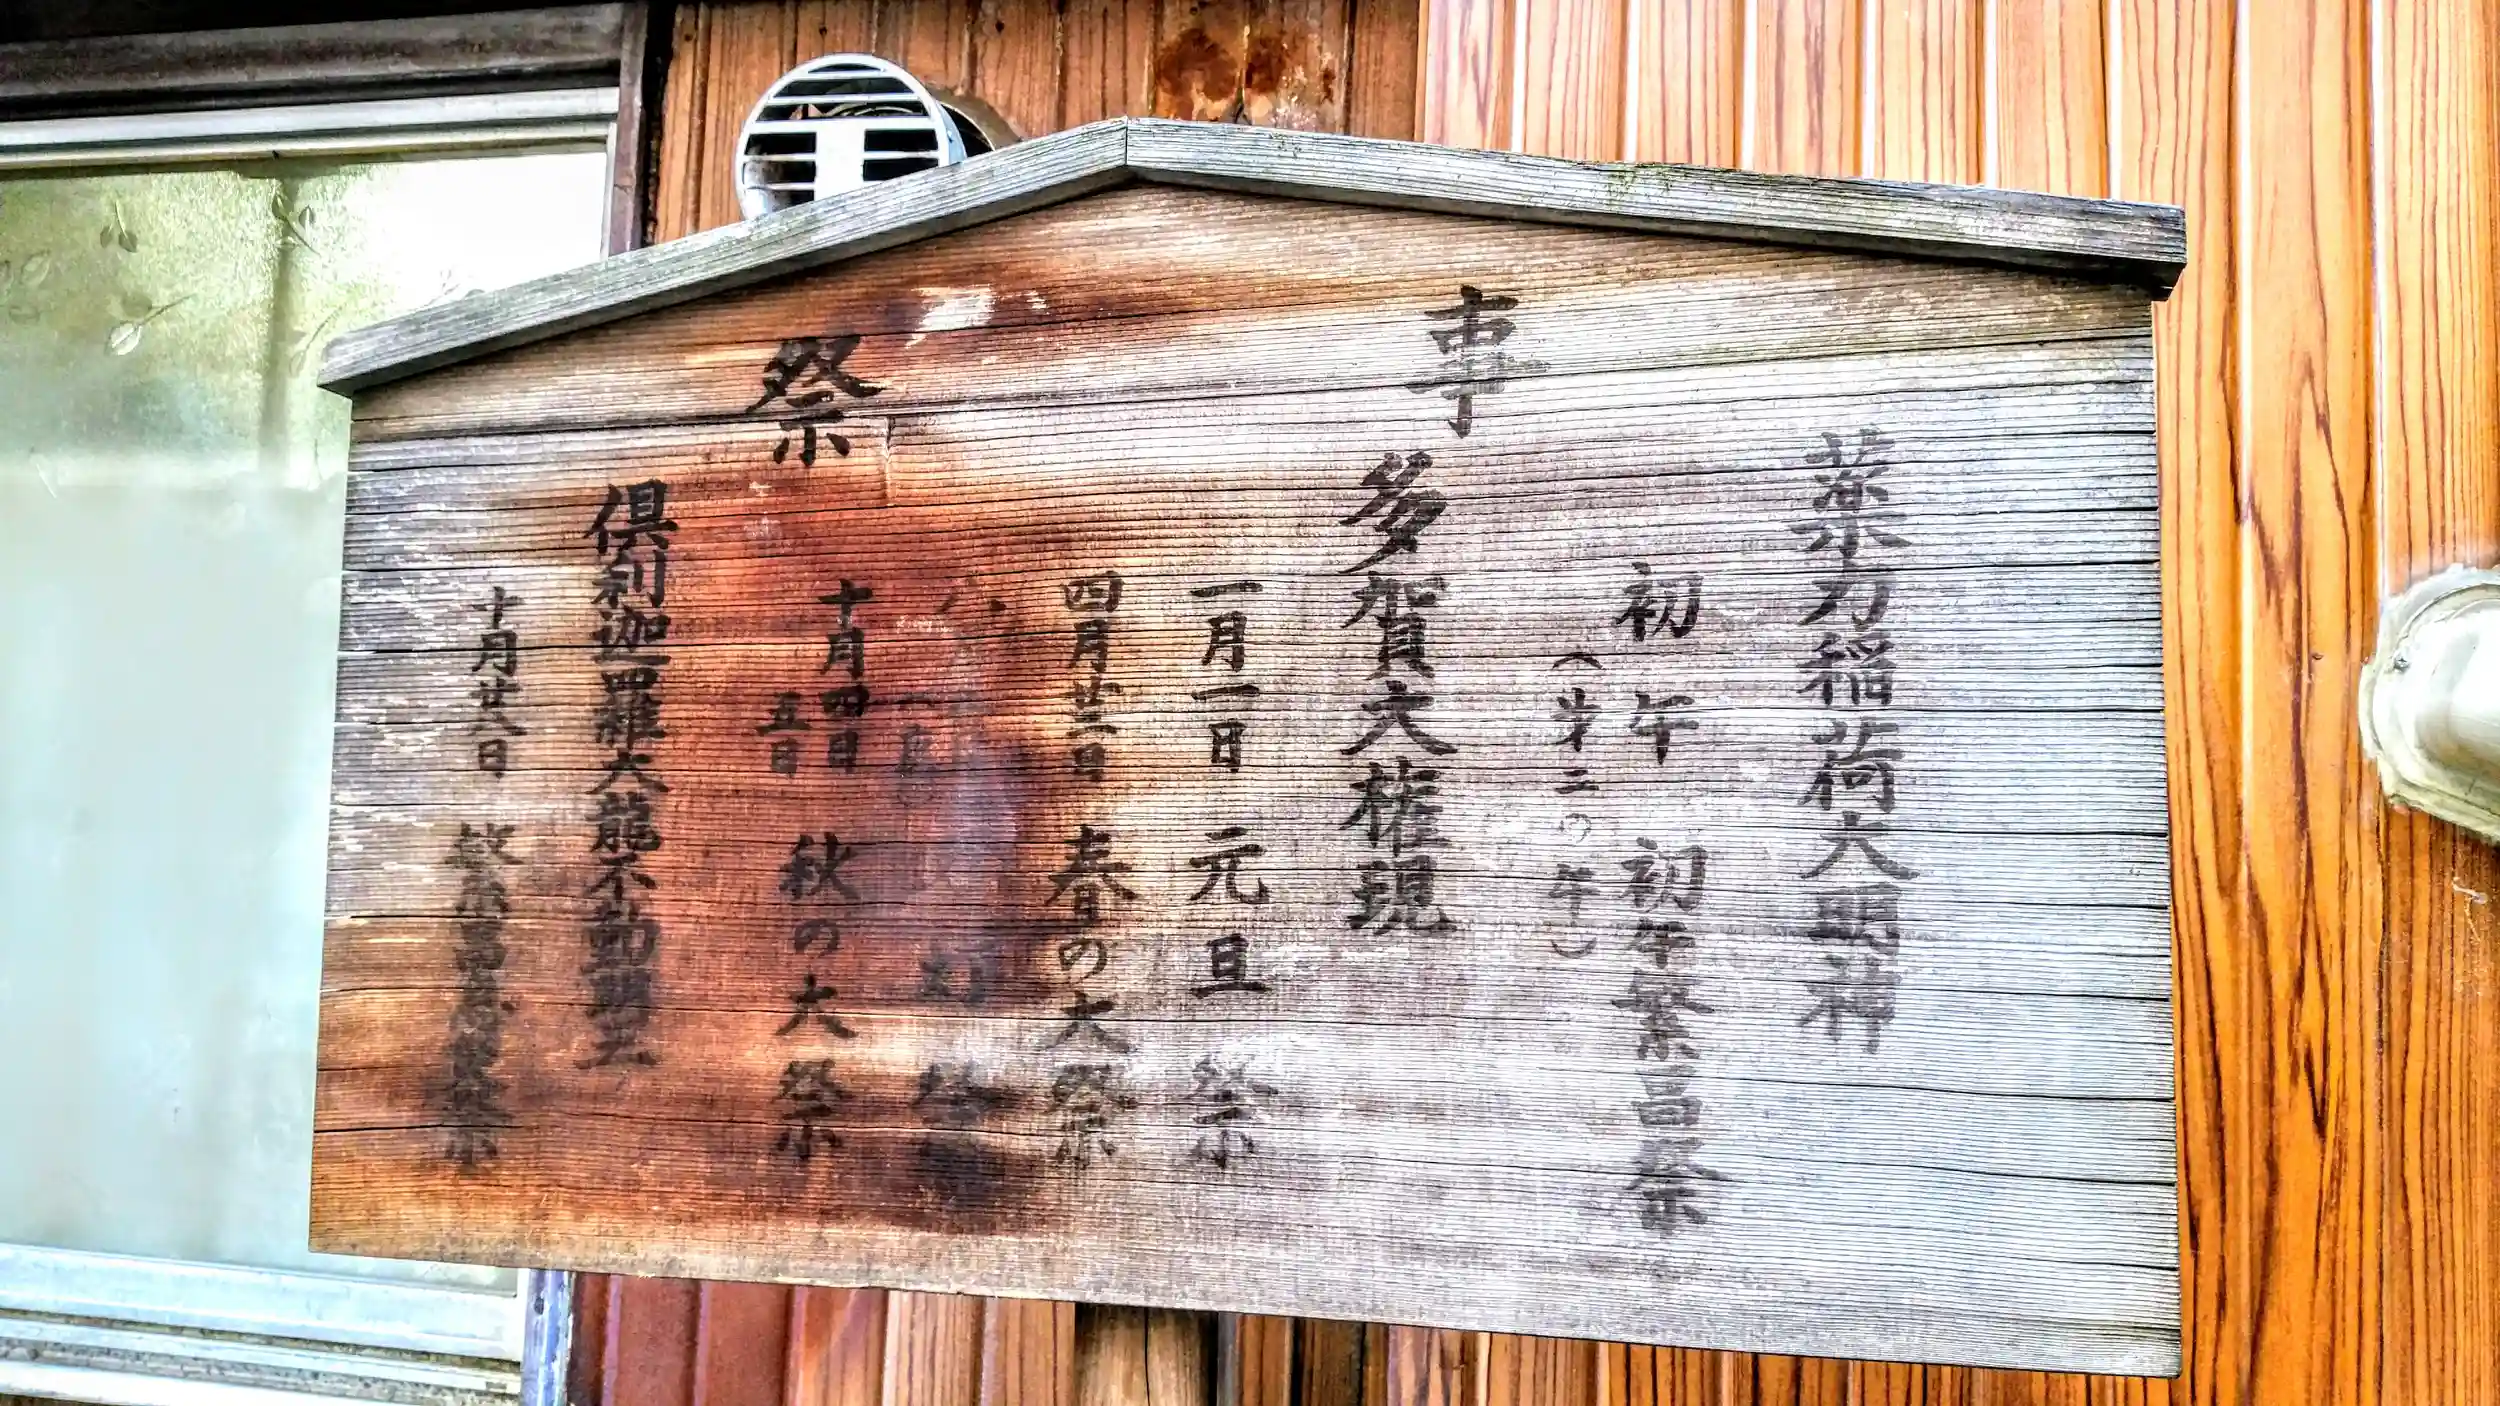 事祭
薬力稲荷大明神
初午 初午繁昌祭
(又ハ二の午)
多賀大権現
一月一日 元旦祭
四月廿二日 春の大祭
祭
十月四日 秋の大祭
五日
倶利迦羅大龍不動明王
十月廿八日